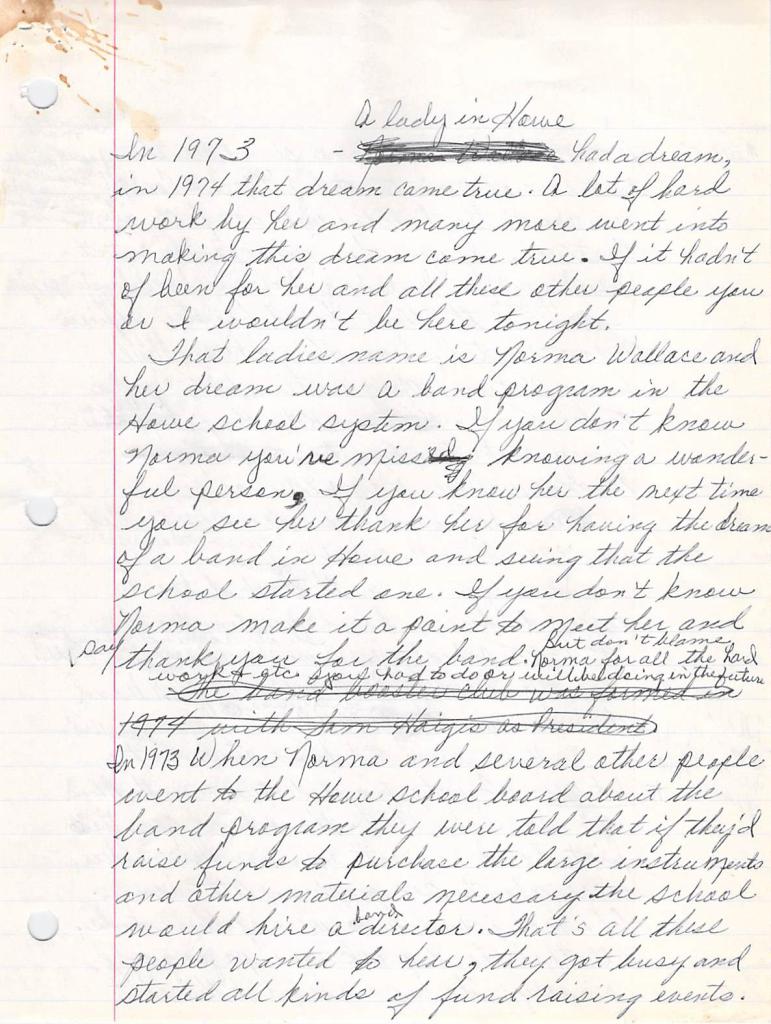 A lady in Howe
In 1973 - Norma Wallace had a dream,
in 1974 that dream came true. A lot of hard
work by her and many more went into
making this dream come true. If it hadn't
of been for her and all these other people you
or I wouldn't be here tonight.
That ladies name is Norma Wallace and
her dream was a band program in the
Howe school system. If you don't know
Norma you've missed knowing a wonder-
ful person. If you know her the next time
you see her thank her for having the dream
of a band in Howe and seeing that the
school started one. If you don't know
Norma make it a point to meet her and
say thank you for the band. But don't blame
Norma for all the hard
work & etc you had to do or will be doing in the future
The band booster club was formed in
1974 with Sam Haigis as President
In 1973 When Norma and several other people
went to the Howe school board about the
band program they were told that if they'd
raise funds to purchase the large instruments
and other materials necessary the school
would hire a band director. That's all these
people wanted to hear, they got busy and
started all kinds of fund raising events.